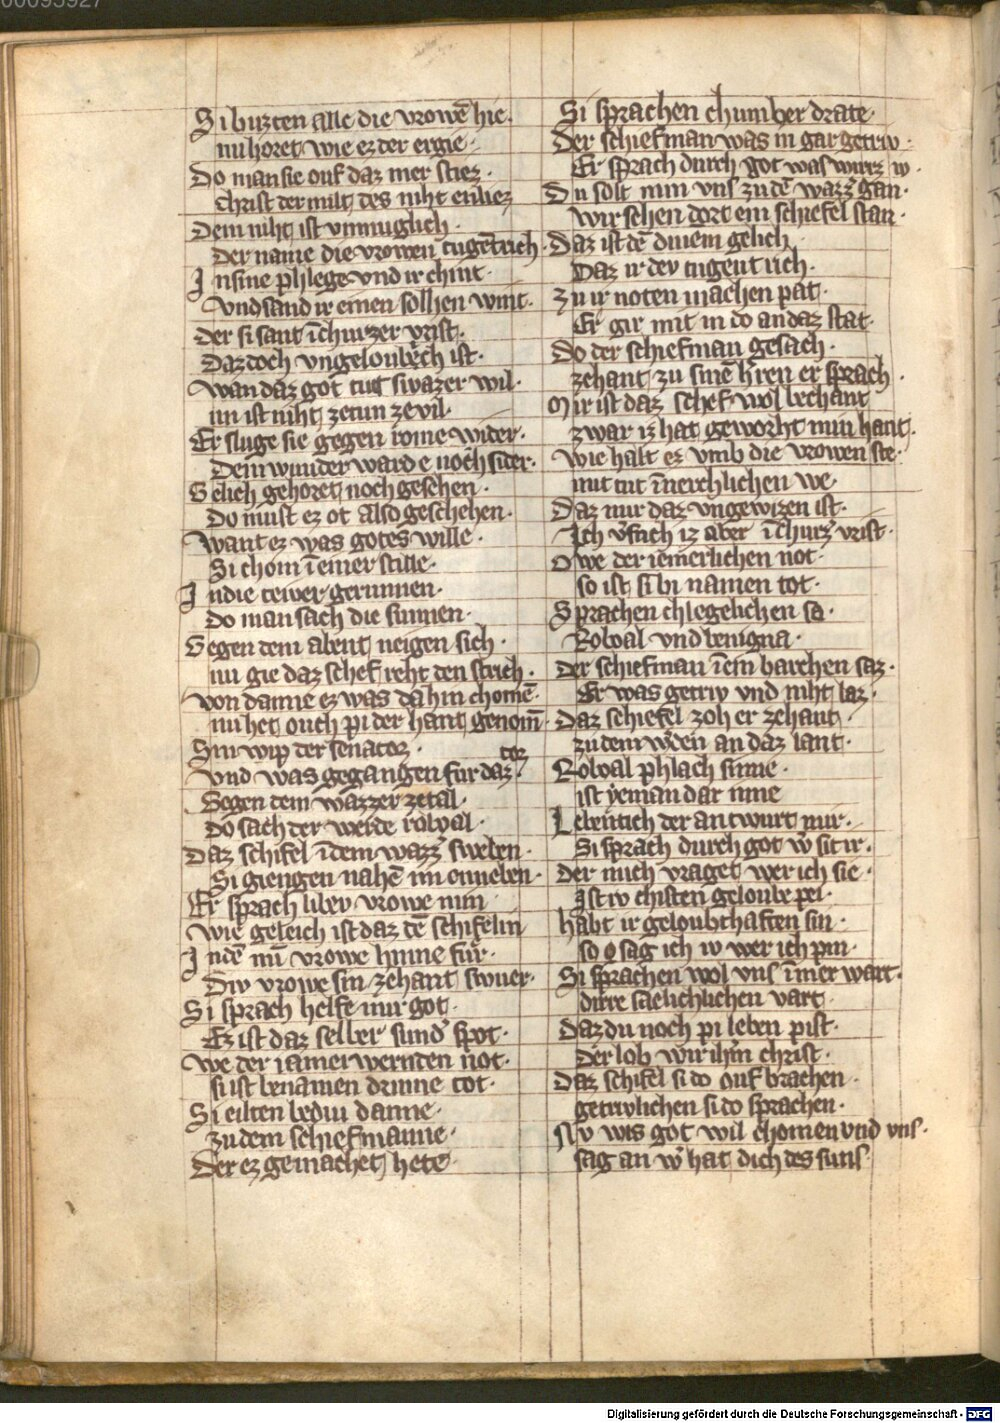 00095927
Si buzten alle die vrowē hie.
nu horet wie ez der ergie.
Do man sie ouf daz mer stiez.
Christ der milt des niht enliez
Dem niht ist vnmuglich.
Der name die vrowen tugētrich.
In sine phlege vnd ir chint.
vnd sand ir einen solhen wint.
der si sant īchurzer vrist.
Daz doch vngeloubech ist.
wan daz got tut swaz er wil.
im ist niht ze tun ze vil.
Er sluge sie gegen rome wider.
Dem wunder ward e noch sider.
Gelich gehoret noch gesehen.
Do must ez ot also geschehen.
want ez was gotes wille.
Si chom īemer stille.
In die teiver gerunnen.
do man sach die sunnen.
Gegen dem abent neigen sich.
nu gie daz schef reht den strich.
von danne ez was da hin chomē.
nu het ouch pi der hant genom̄.
Sin wip der senator.
vnd was gegangen fur daz tor
Gegen dem wazzer zetal.
do sach der werde roboal.
Daz schifel īdem wazz̄ sweben.
Si giengen nahē im enneben.
Er sprach libev vrowe min
wie geleich ist daz dē schifelin
In dē mī vrowe hinne fur.
Div vrowe sin zehant swuer.
Si sprach helfe mir got.
Ez ist daz selber sund̄ spot.
we der iamer wernden not.
si ist benamen drinne tot.
Si eilten bediu danne.
zu dem schiefmanne.
Der ez gemachet hete.
Si sprachen chum her drate.
Der schiefman was in gar getriv.
Er sprach durch got waz wirrz iv.
Du solt mm vns zu dē wazz̄ gan.
wir sehen dort ein schiefel stan.
Daz ist dē dinem gelich
Daz ir der tugent rich.
zu ir noten machen pat.
Er gir mit in do an daz stat.
Do der schiefman gesach.
zehant zu sinē h̄ren er sprach.
Mir ist daz schef wol bechant
zwar iz hat geworht min hant.
wie halt ez vmb die vrowen ste.
mir tut īnerchlichen we.
Daz mir daz vngewizen ist.
Ich v̄sūch iz aber īchurz̄ vrist.
owe der iem̄erlichen not.
so ist si bi namen tot.
Sprachen chlegelichen so.
Roboal vnd benigna.
der schiefman īem barchen saz.
Er was getriv vnd niht laz.
Daz schiefel zoh er zehant.
zu dem w̄den an daz lant.
Roboal phlach sinne.
ist yeman dar inne
Lebentich der antwurt mir.
Si sprach durch got w̄ sit ir.
der mich vraget wer ich sie.
Ist iv christen geloube pei.
habt ir geloubthaften sin.
so sag ich iv wer ich pin.
Si sprachen wol vns īmer wart.
dirre saelichlichen vart.
Daz du noch pi leben pist.
Der lob wir ihm̄ christ.
Daz schifel si do ouf brachen.
getrivlichen si do sprachen.
Nv wis got wil chomen vnd vns.
sag an w̄ hat dich des suns.
Digitalisierung gefördert durch die Deutsche Forschungsgemeinschaft - DFG